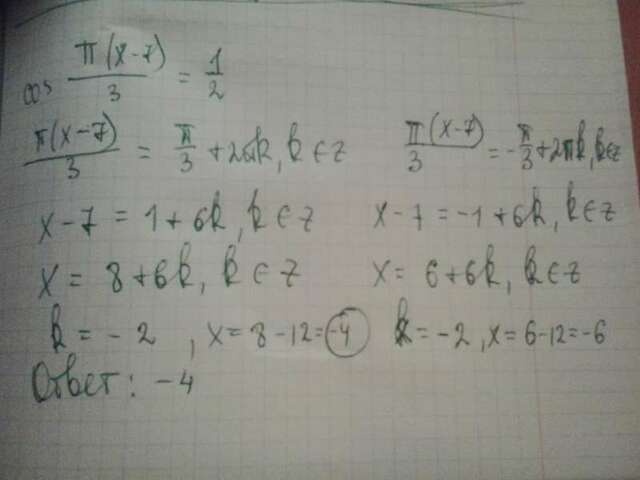 cos π(x-7)/3 = 1/2
π(x-7)/3 = π/3 + 2πk, k∈z π(x-7)/3 = -π/3 + 2πk, k∈z
x-7 = 1+6k, k∈z x-7 = -1+6k, k∈z
x = 8+6k, k∈z x = 6+6k, k∈z
k = -2, x = 8-12=-4 k=-2, x=6-12=-6
Ответ: -4